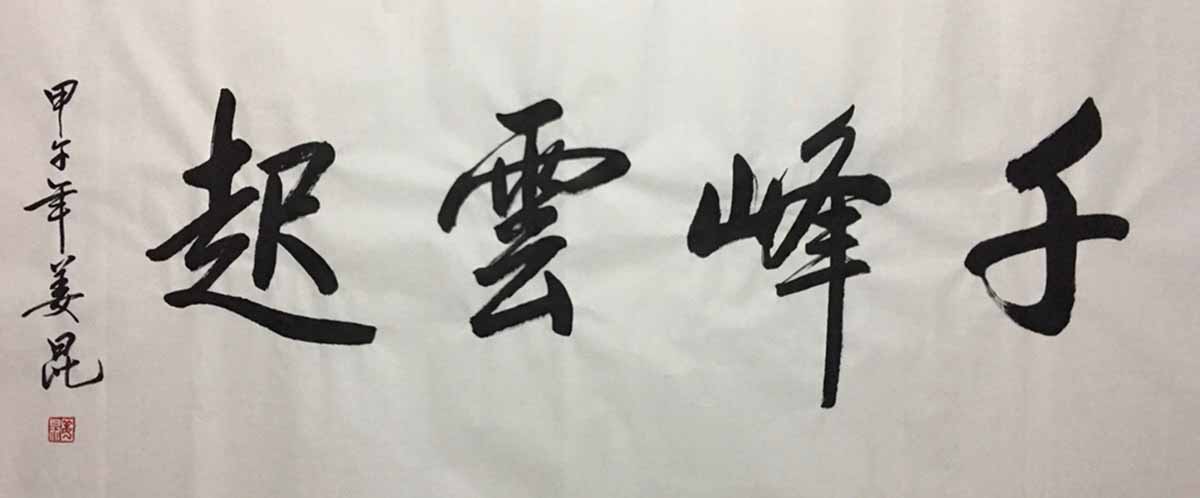 千峰雲起
甲午年姜昆
姜昆